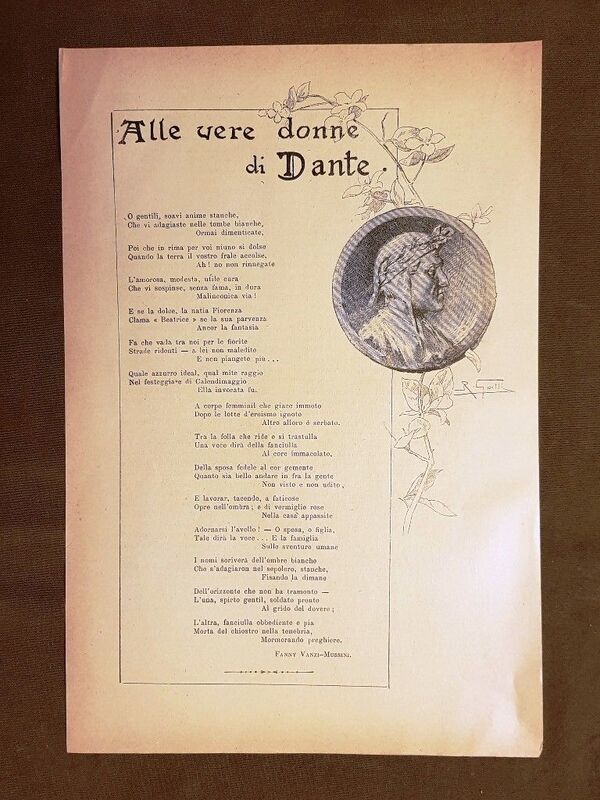 Alle vere donne
di Dante.
O gentili, soavi anime stanche,
Che vi adagiaste nelle tombe bianche,
Ormai dimenticate,
Poi che in rima per voi niuno si dolse
Quando la terra il vostro frale accolse,
Ah! no non rinnegate
L'amorosa, modesta, utile cura
Che vi sospinse, senza fama, in dura
Malinconica via!
E se la dolce, la natia Fiorenza
Clama « Beatrice » se la sua parvenza
Ancor la fantasia
Fa che vada tra noi per le fiorite
Strade ridenti — a lei non maledite
E non piangete più...
Quale azzurro ideal, qual mite raggio
Nel festeggiare di Calendimaggio
Ella invocata fu.
A corpo femminil che giace immoto
Dopo le lotte d'eroismo ignoto
Altro alloro è serbato.
Tra la folla che ride e si trastulla
Una voce dirà della fanciulla
Al core immacolato,
Della sposa fedele al cor gemente
Quanto sia bello andare in fra la gente
Non visto e non udito,
E lavorar, tacendo, a faticose
Opre nell'ombra; e di vermiglie rose
Nella casa appassite
Adornarsi l'avello! — O sposa, o figlia,
Tale dirà la voce... E la famiglia
Sulle sventure umane
I nomi scriverà dell'ombre bianche
Che s'adagiaron nel sepolcro, stanche,
Fisando la dimane
Dell'orizzonte che non ha tramonto —
L'una, spirto gentil, soldato pronto
Al grido del dovere;
L'altra, fanciulla obbediente e pia
Morta del chiostro nella tenebria,
Mormorando preghiere.
Fanny Vanzi-Mussini.